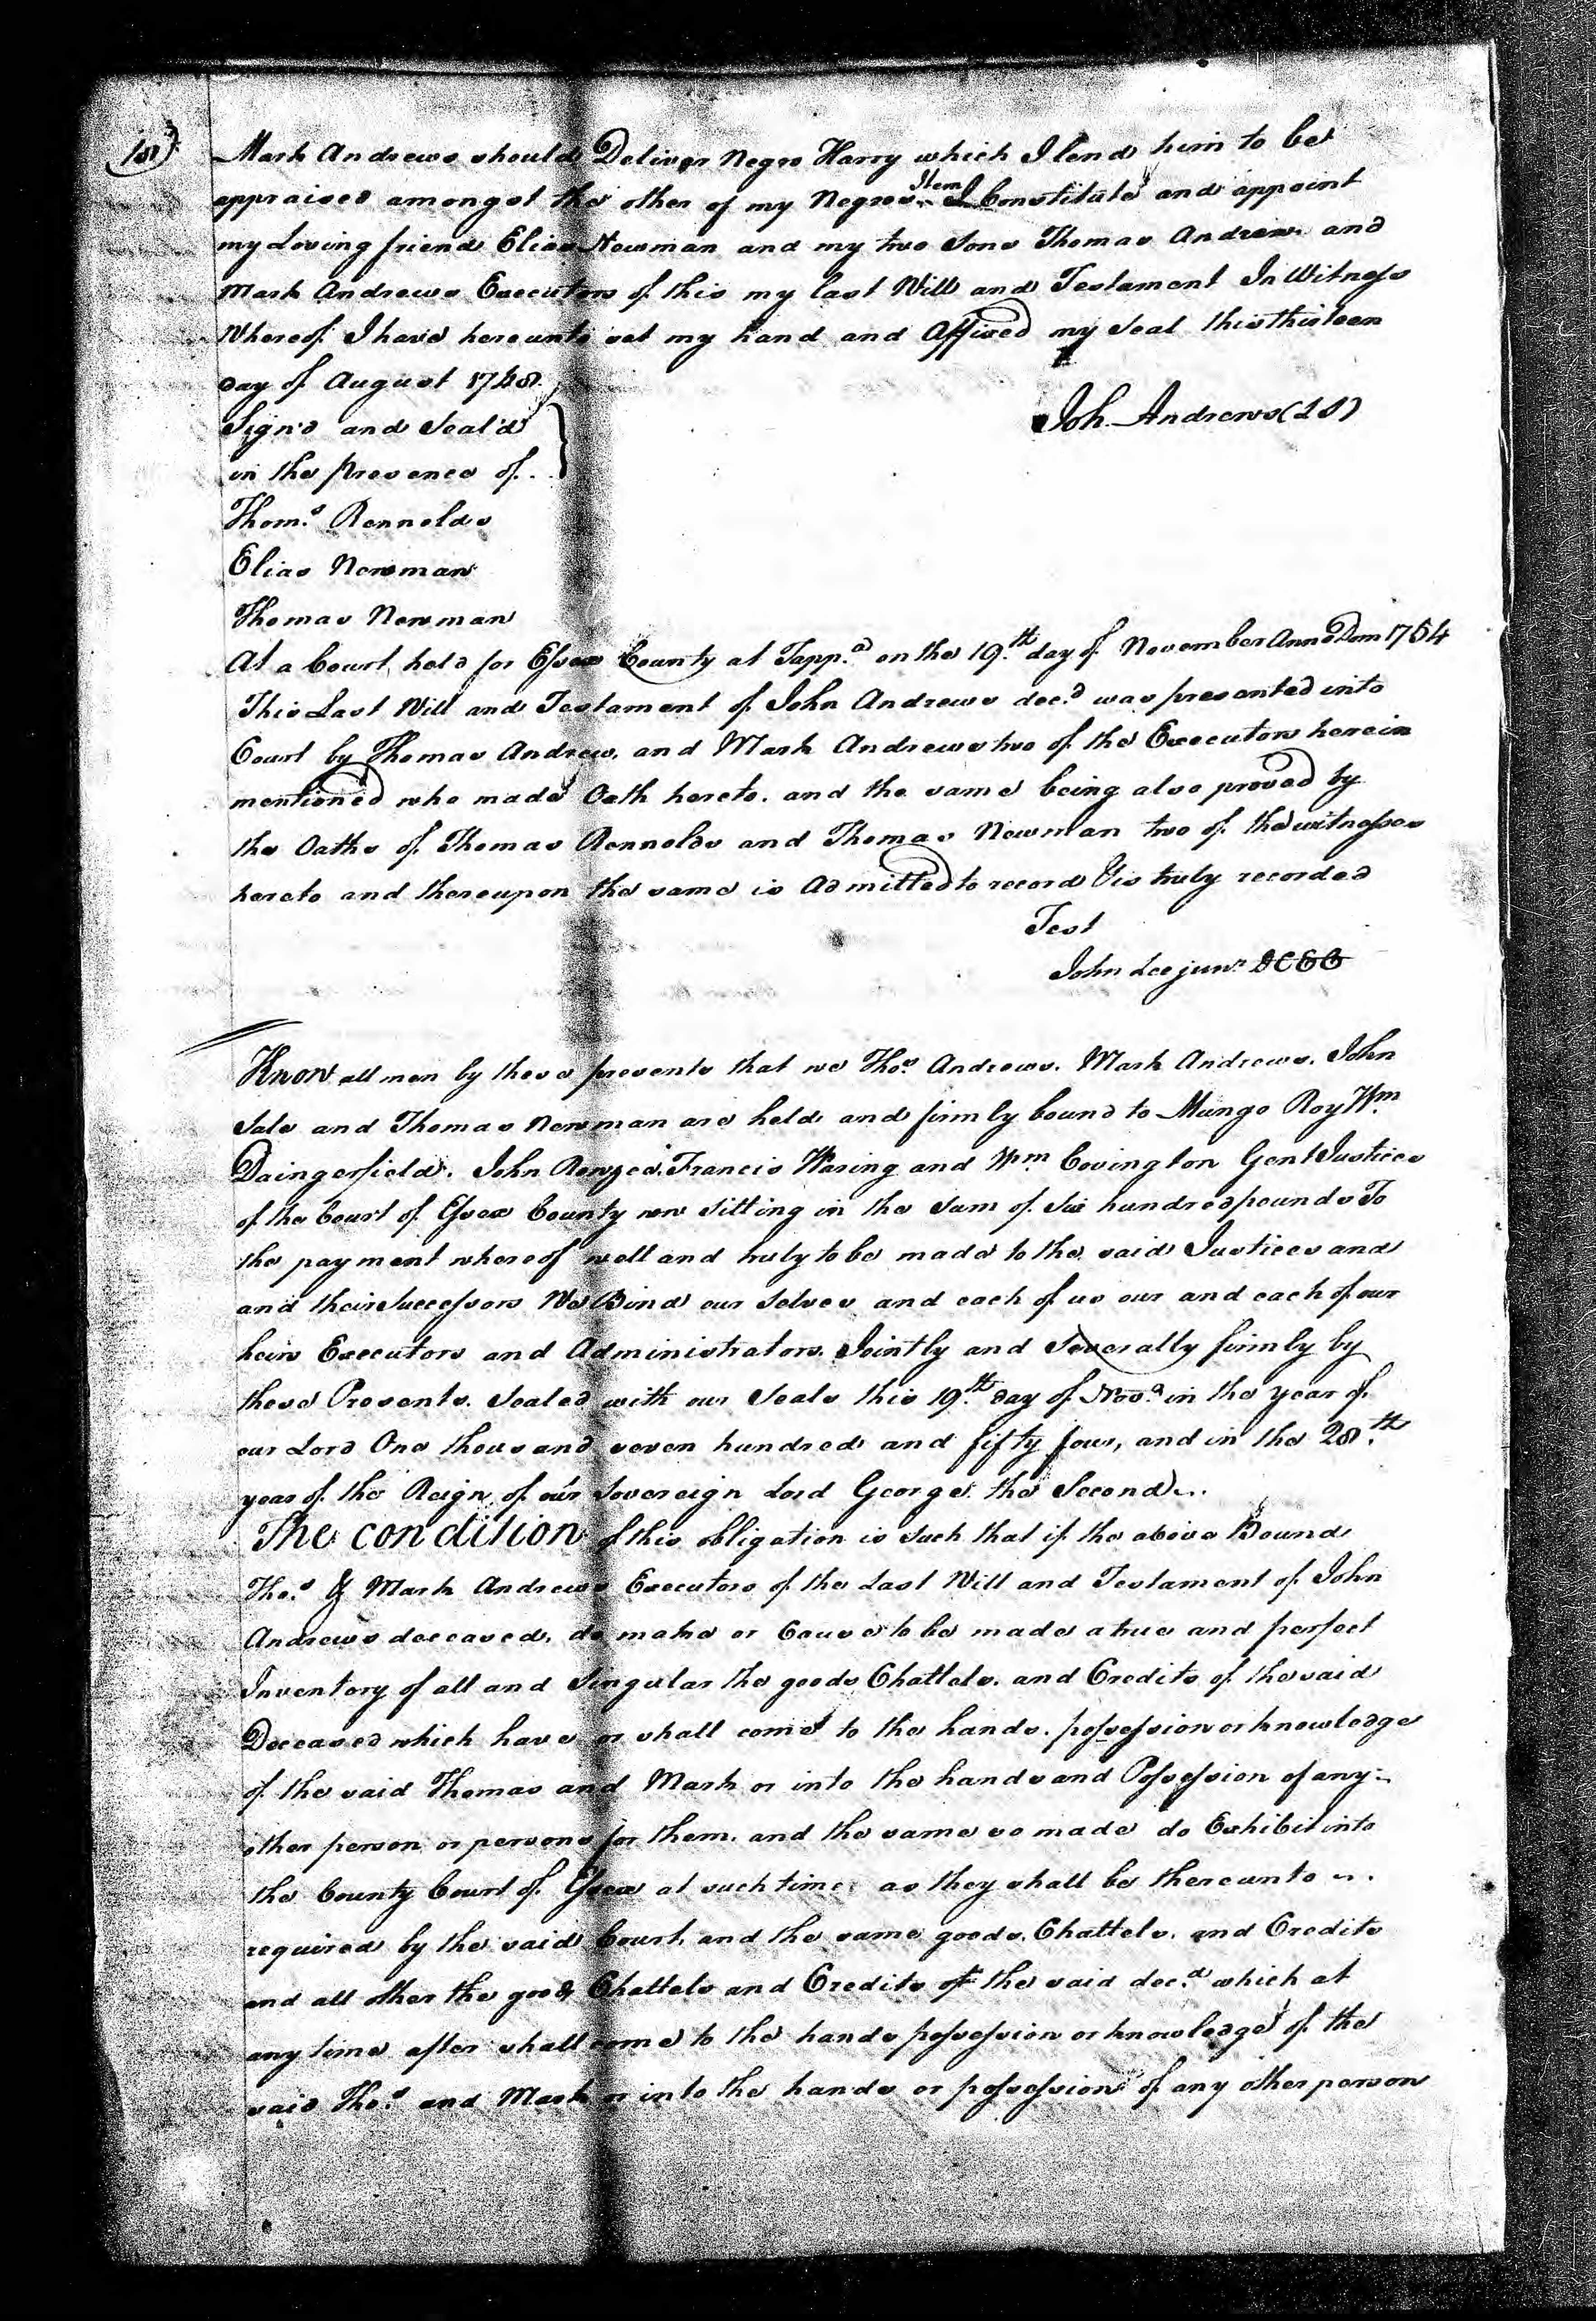 Mark Andrews should Deliver Negro Harry which I lend him to be
appraised amongst the other of my Negros. Item I Constitute and appoint
my Loving friend Elias Newman and my two Sons Thomas Andrews and
Mark Andrews Executors of this my last Will and Testament In Witness
Whereof I have hereunto set my hand and Affixed my Seal this thirteen
day of August 1748.
Sign'd and Seal'd
Joh. Andrews (LS)
in the presence of.
Thoms. Rennolds
Elias Newman
Thomas Newman
At a Court held for Essex County at Tappa. on the 19th. day of November Anno Dom 1754
This Last Will and Testament of John Andrews decd. was presented into
Court by Thomas Andrew, and Mark Andrews two of the Executors herein
mentioned who made Oath hereto. and the same being also proved by
the Oaths of Thomas Rennolds and Thomas Newman two of the witnesses
hereto and thereupon the same is Admitted to record & is truly recorded
Test
John Lee junr.
Know all men by these presents that we Thos. Andrews. Mark Andrews. John
Sale and Thomas Newman are held and firmly bound to Mungo Roy Wm.
Daingerfield. John Francis Waring and Wm. Covington Gent Justices
of the Court of Essex County now Sitting in the Sum of Six hundred pounds To
the payment whereof well and truly to be made to the said Justices and
and their Successors We Bind our Selves and each of us our and each of our
heirs Executors and Administrators Jointly and Severally firmly by
these Presents. Sealed with our Seals this 19th. day of Novr. in the year of
our Lord One thousand seven hundred and fifty four, and in the 28.th
year of the Reign of our Sovereign Lord George the Second.
The condition of this obligation is Such that if the above Bound
Thos. & Mark Andrews Executors of the Last Will and Testament of John
Andrews deceased, do make or Cause to be made a true and perfect
Inventory of all and Singular the goods Chattels. and Credits of the said
Deceased which have or shall come to the hands. possession or knowledge
of the said Thomas and Mark or into the hands and Possession of any
other person or persons for them. and the same so made do Exhibit into
the County Court of Essex at such time as they shall be thereunto
required by the said Court. and the same goods. Chattels. and Credits
and all other the goods Chattels and Credits of the said decd. which at
any time after shall come to the hands possession or knowledge of the
said Thos. and Mark or into the hands or possession of any other person